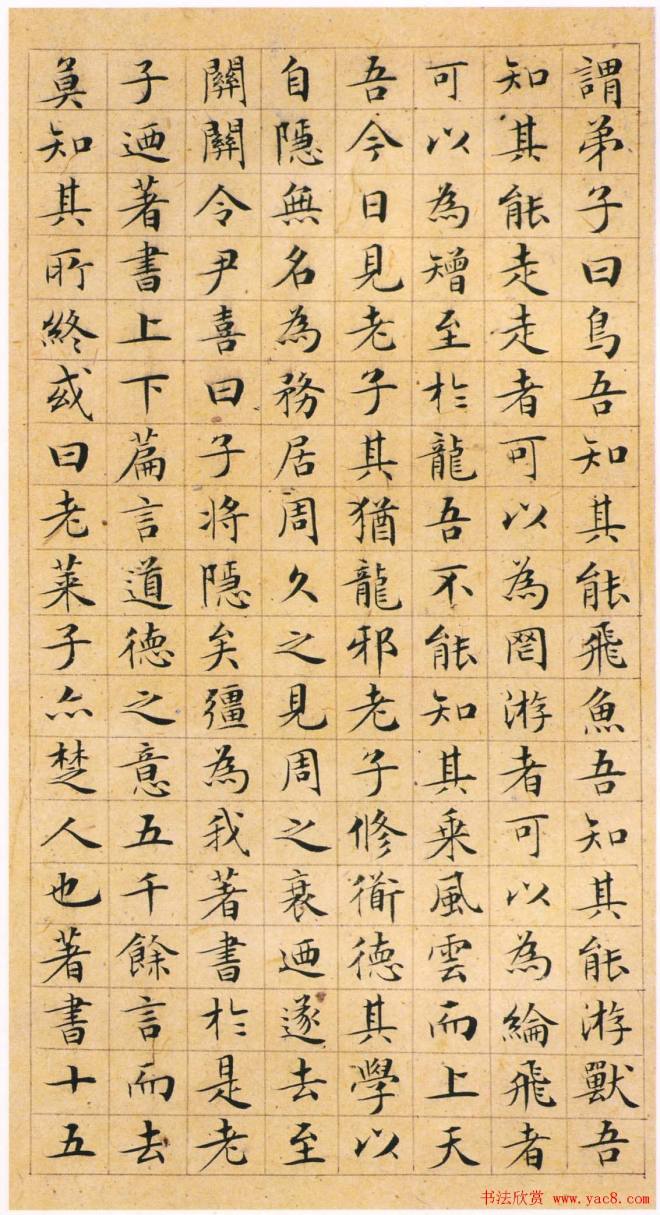 謂弟子曰鳥吾知其能飛魚吾知其能游獸吾
知其能走走者可以為罔游者可以為綸飛者
可以為矰至於龍吾不能知其乘風雲而上天
吾今日見老子其猶龍邪老子修衜德其學以
自隱無名為務居周久之見周之衰迺遂去至
關關令尹喜曰子將隱矣彊為我著書於是老
子迺著書上下篇言道德之意五千餘言而去
莫知其所終或曰老萊子亦楚人也著書十五
书法欣赏 www.yac8.com